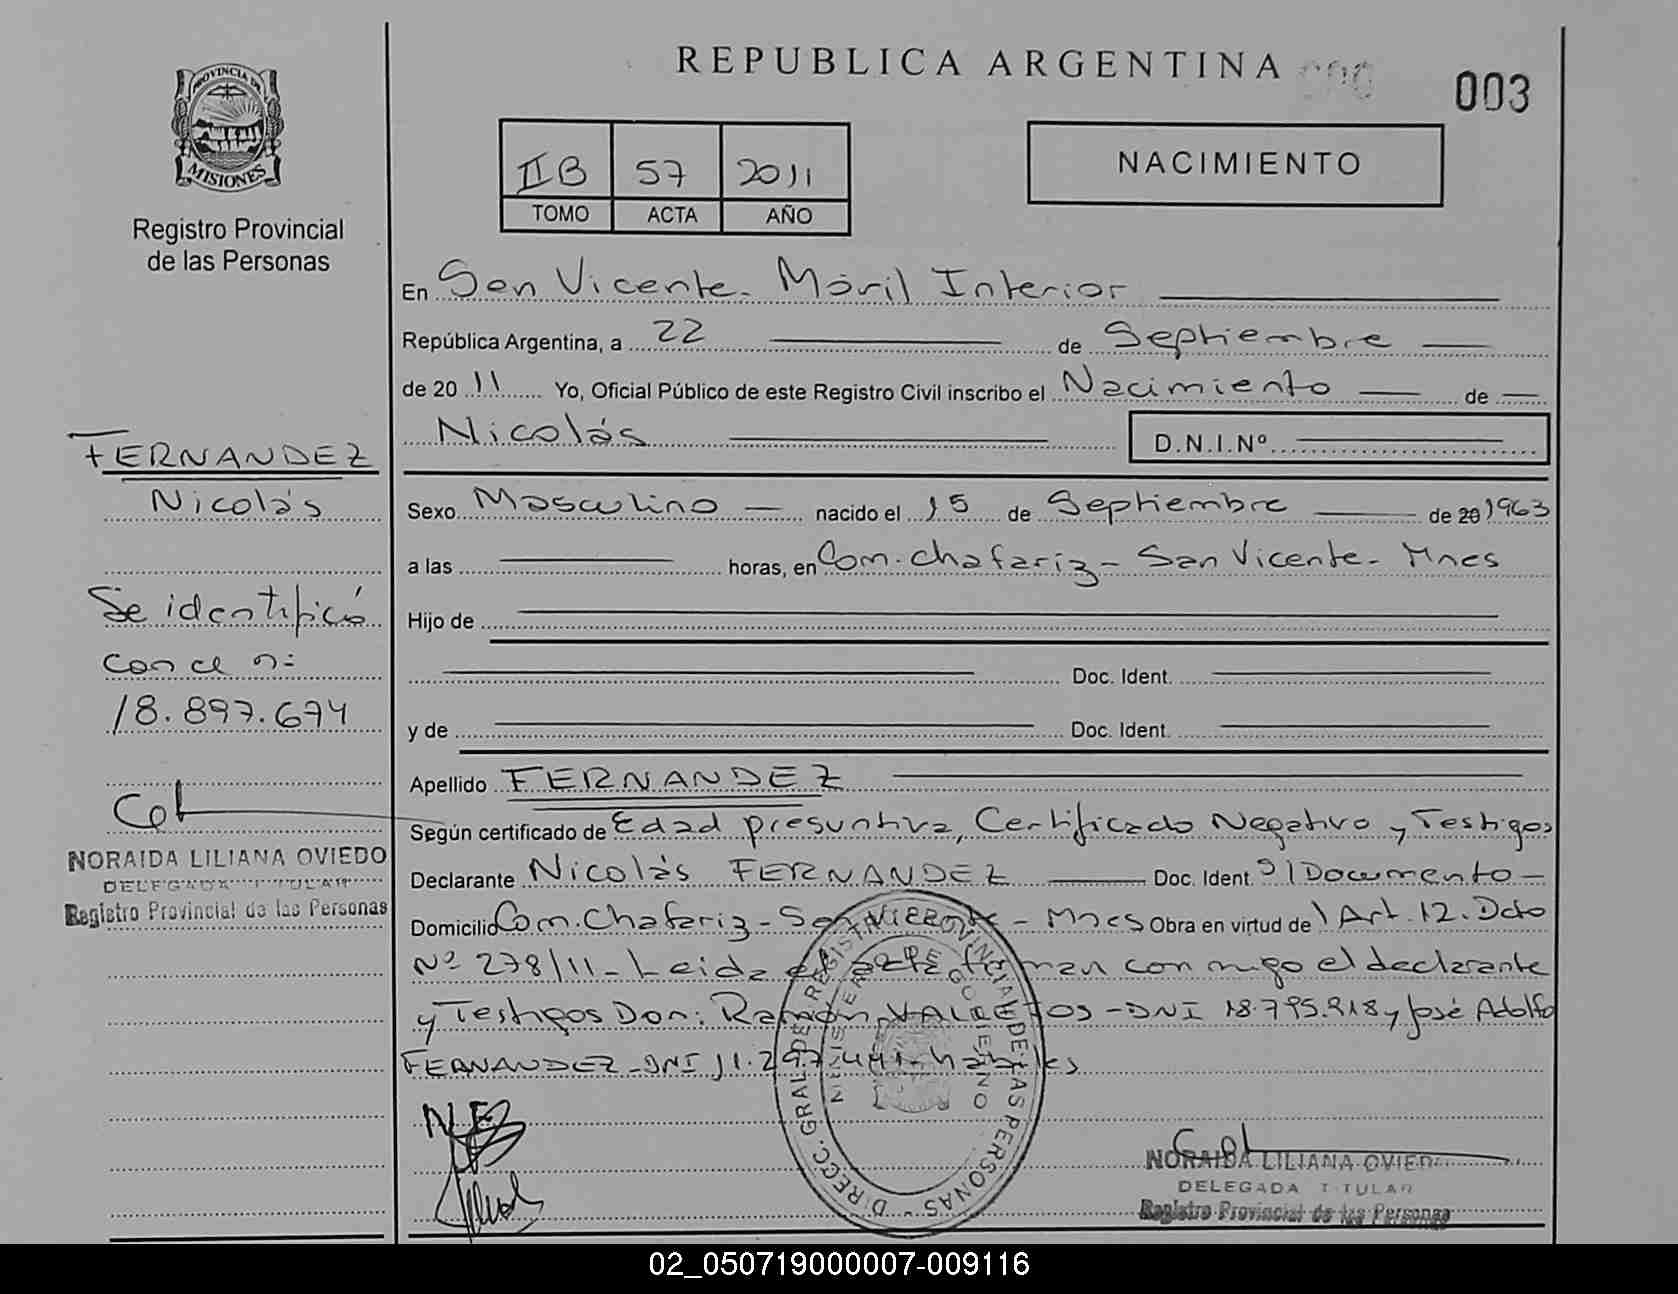 REPUBLICA ARGENTINA
003
PROVINCIA DE
MISIONES
Registro Provincial
de las Personas
IIB 57 2011
TOMO ACTA AÑO
NACIMIENTO
En San Vicente - Móvil Interior
República Argentina, a 22 de Septiembre
de 20 11 Yo, Oficial Público de este Registro Civil inscribo el Nacimiento de
Nicolás D.N.I.Nº
FERNANDEZ
Nicolás
Se identificó
con el nº
18.897.674
NORAIDA LILIANA OVIEDO
DELEGADA TITULAR
Registro Provincial de las Personas
Sexo Masculino nacido el 15 de Septiembre de 20 1963
a las horas, en Com. Chafariz - San Vicente - Mnes
Hijo de
Doc. Ident.
y de Doc. Ident.
Apellido FERNANDEZ
Según certificado de Edad presuntiva, Certificado Negativo y Testigos
Declarante Nicolás FERNANDEZ Doc. Ident. S/Documento -
Domicilio Com. Chafariz - San Vicente - Mnes Obra en virtud de Art. 12. Dcto
Nº 278/11 - Leida el acta firman conmigo el declarante
y Testigos Don: Ramón DNI 18.795.918 y José Adolfo
FERNANDEZ - DNI 11.297.441 - habiles
DIRECC. GRAL. DE REGISTRO PROVINCIAL DE LAS PERSONAS
MINISTERIO DE GOBIERNO
NORAIDA LILIANA OVIEDO
DELEGADA TITULAR
Registro Provincial de las Personas
02_050719000007-009116